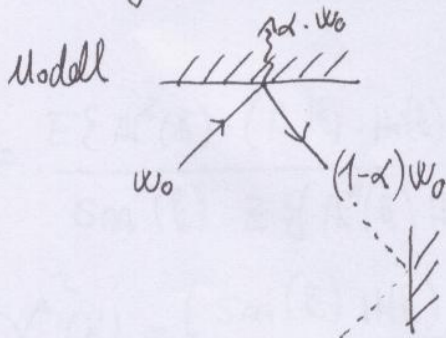 α · w₀
Modell
w₀
(1-α) w₀